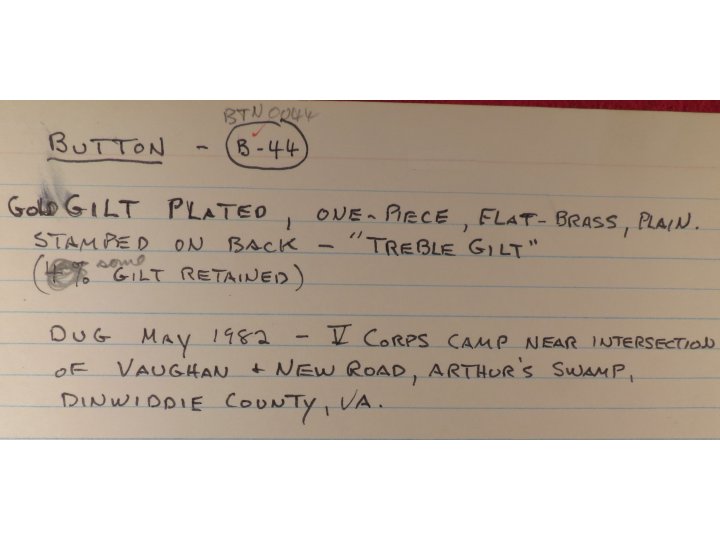 BTN 0044
BUTTON - B-44
GOLD GILT PLATED, ONE-PIECE, FLAT-BRASS, PLAIN.
STAMPED ON BACK - "TREBLE GILT"
(some GILT RETAINED)
DUG MAY 1982 - V CORPS CAMP NEAR INTERSECTION
OF VAUGHAN + NEW ROAD, ARTHUR'S SWAMP,
DINWIDDIE COUNTY, VA.